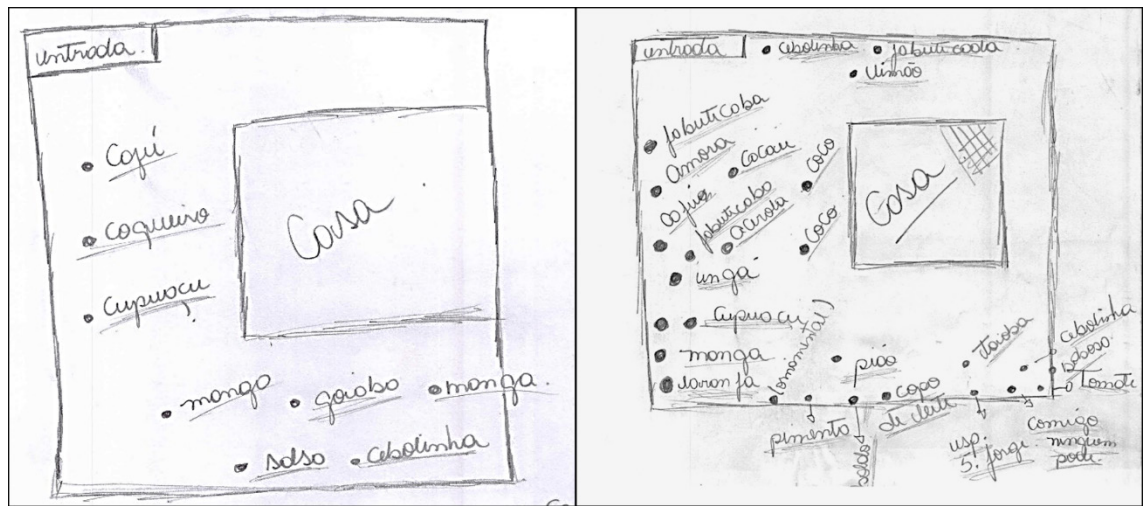 entrada
Cajú
coqueiro
cupuaçu
Casa
manga
goiaba
manga.
salsa
cebolinha
entrada
cebolinha
jabuticaba
limão
jabuticaba
amora
cacau
coco
cajuo
jabuticaba
acerola
coco
Casa
ingá
cupuaçu
manga
laranja
(ornamental)
pião
copo
de leite
taioba
cebolinha
babosa
Tomate
pimenta
esp.
S. Jorge
comigo
ninguem
pode